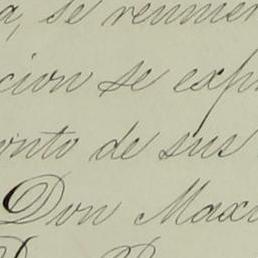 a, se reunier
cion se exp
onto de sus
Don Max